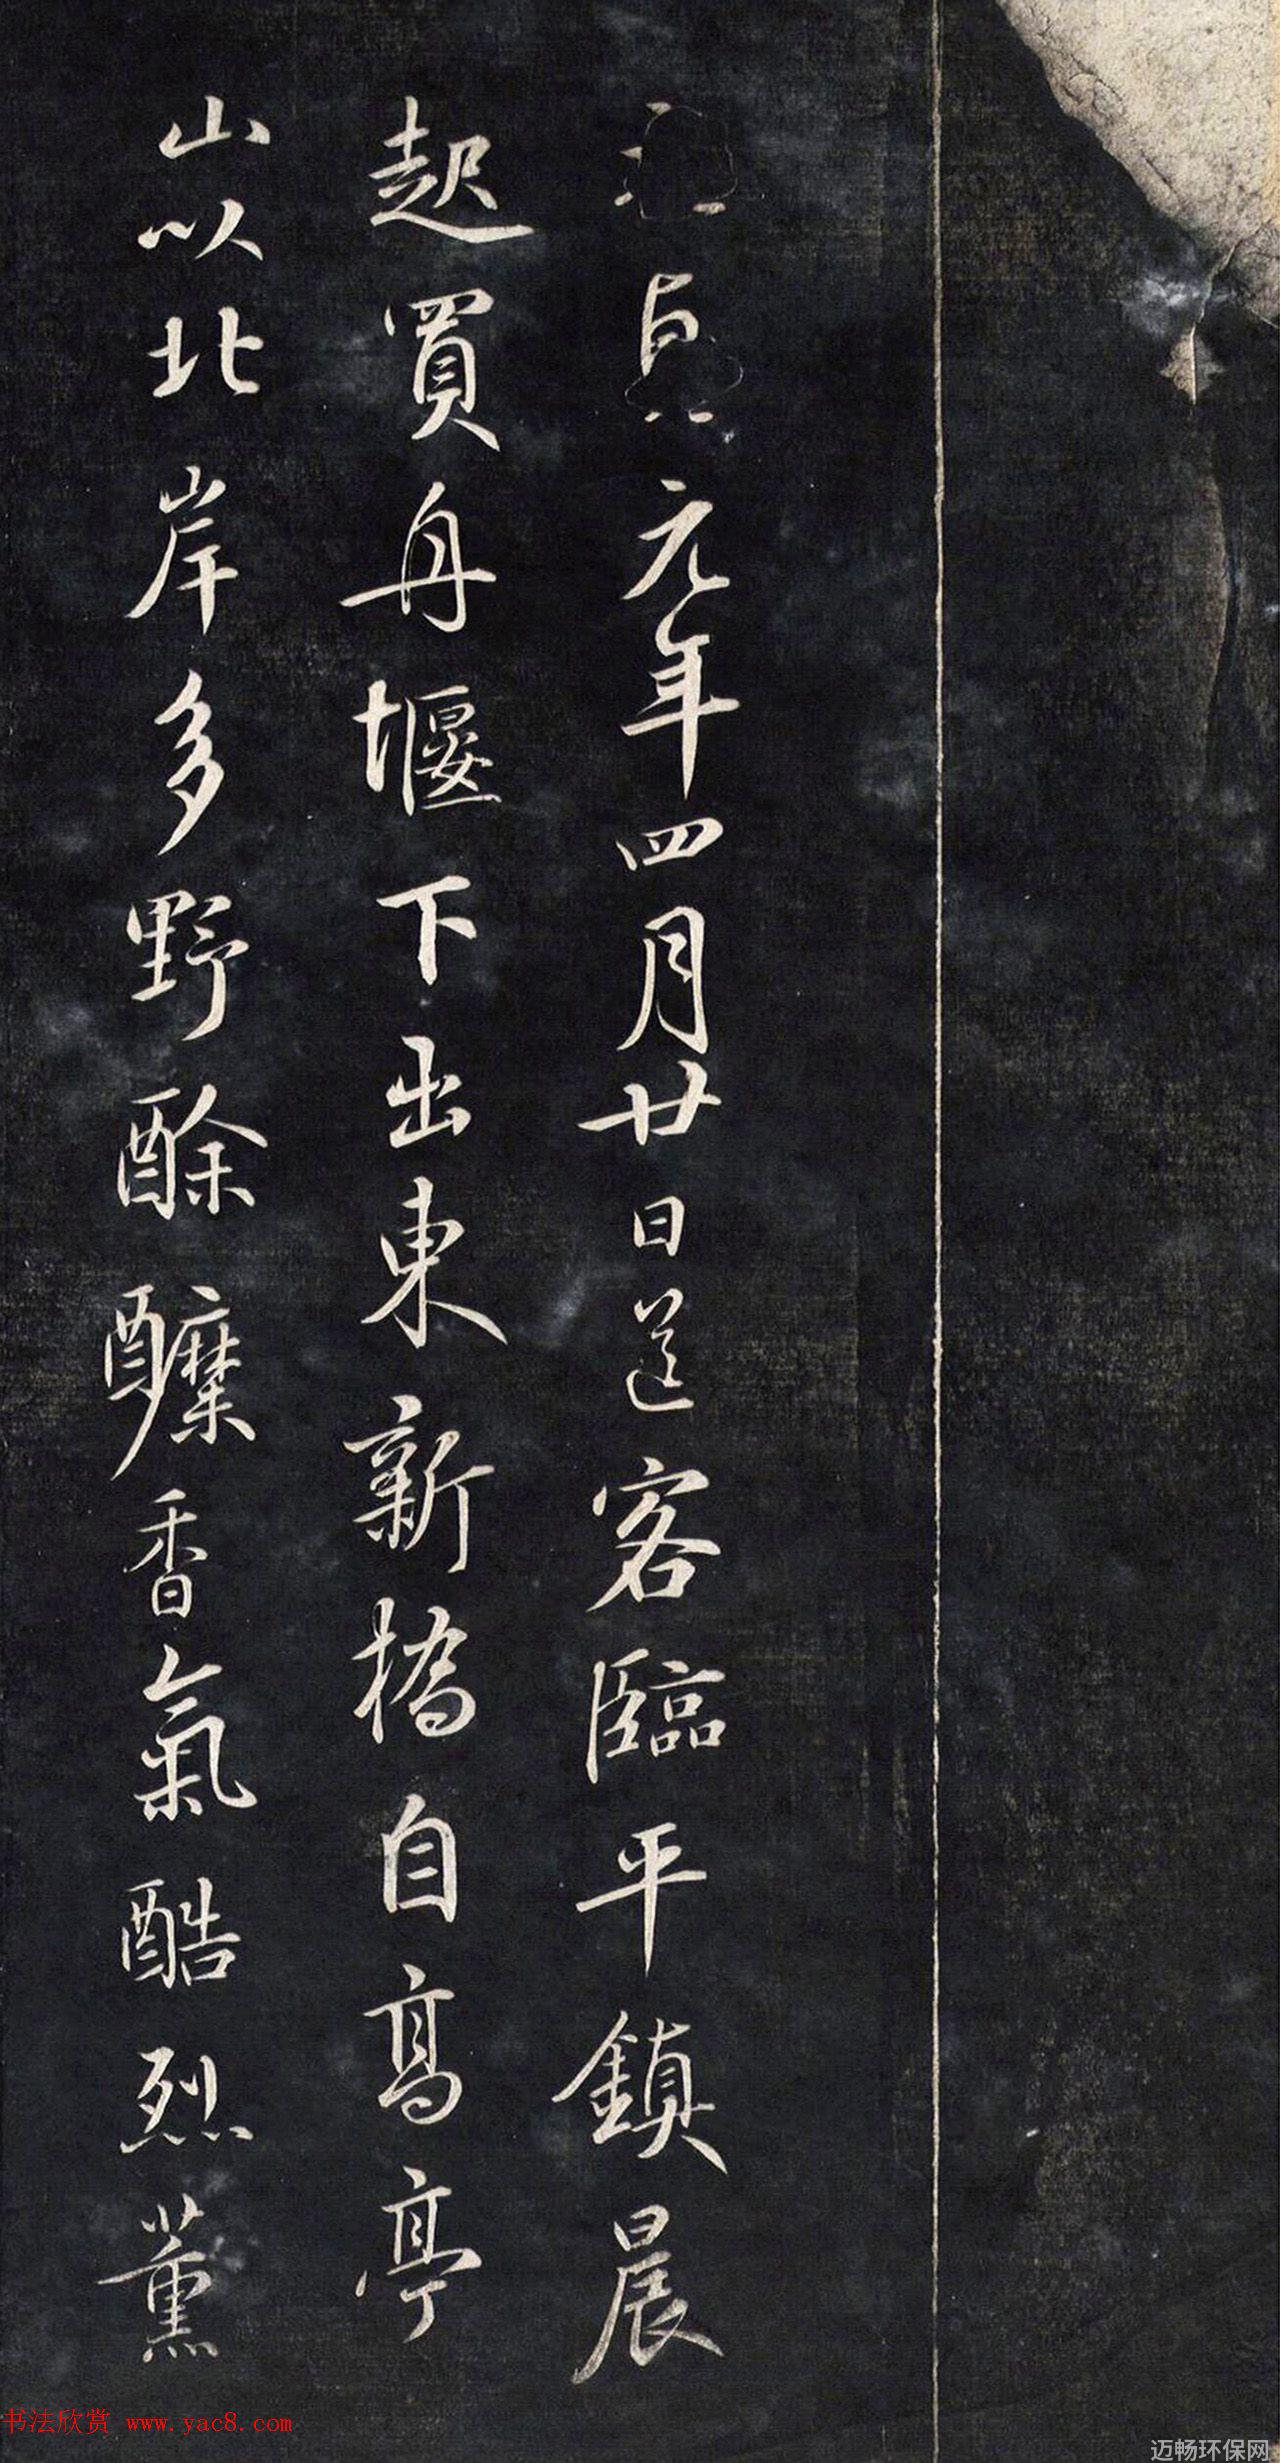 貞元年四月廿日送客臨平鎮晨
起買舟堰下出東新橋自高亭
山以北岸多野酴醾香氣酷烈薰
书法欣赏 www.yac8.com
迈畅环保网